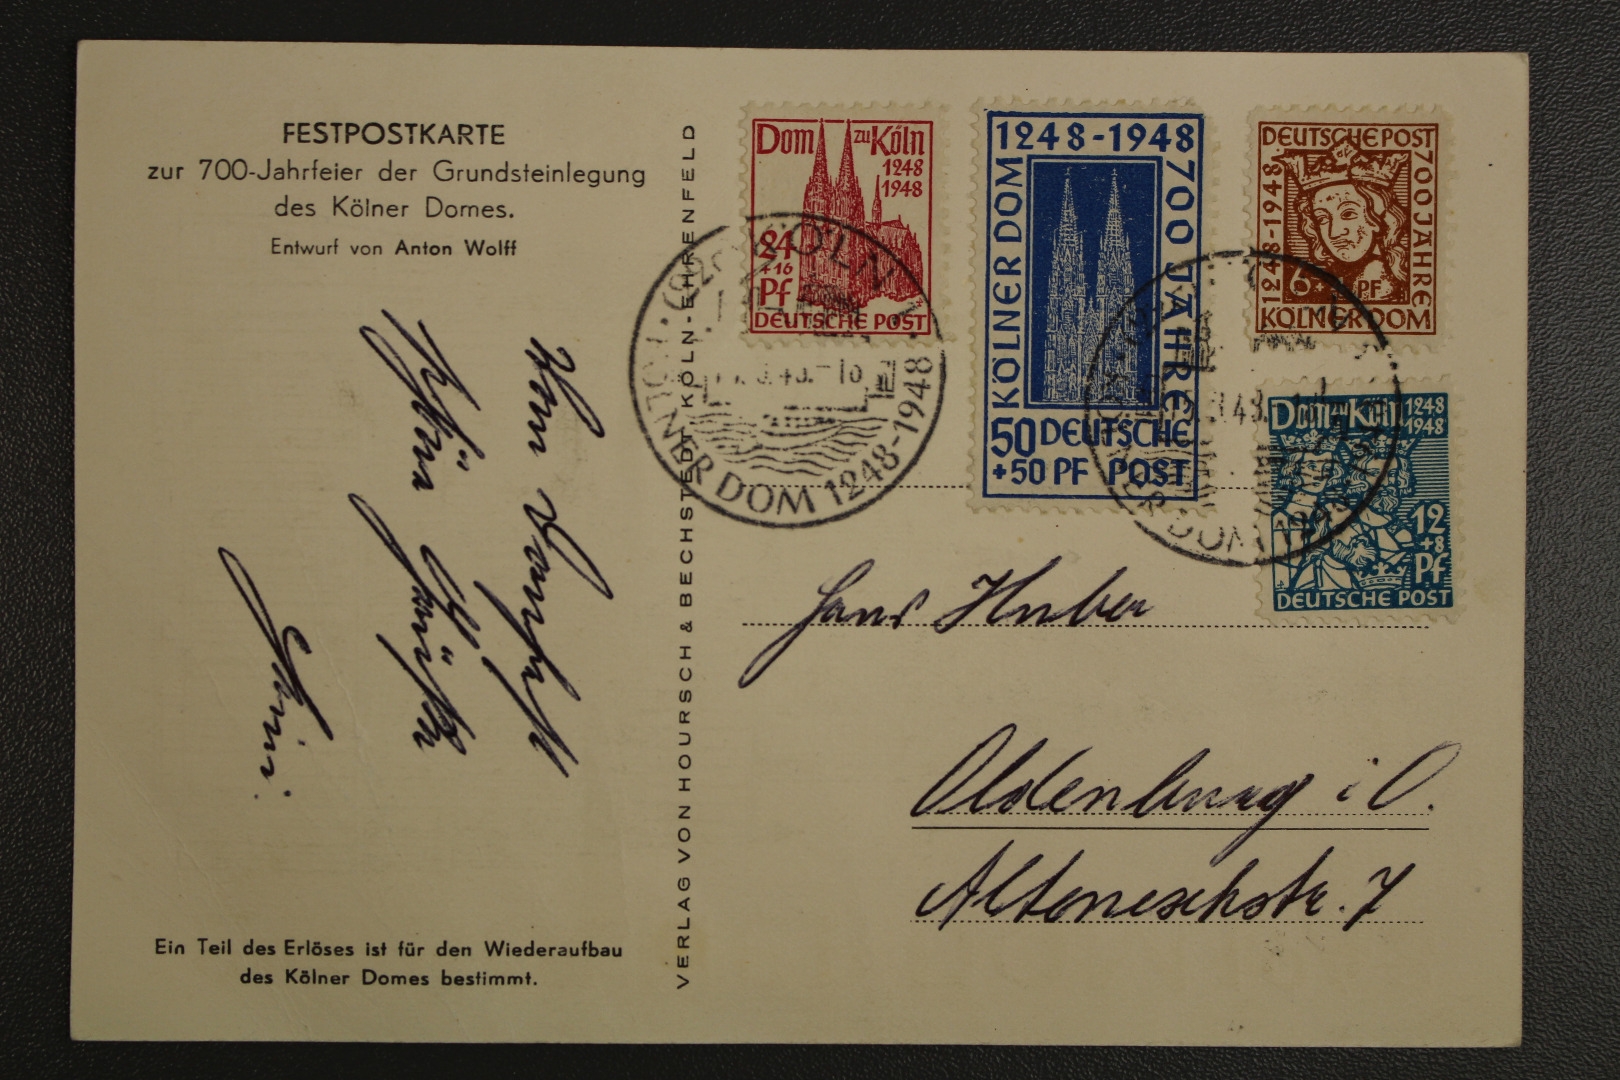 FESTPOSTKARTE
zur 700-Jahrfeier der Grundsteinlegung
des Kölner Domes.
Entwurf von Anton Wolff
Ein Teil des Erlöses ist für den Wiederaufbau
des Kölner Domes bestimmt.
VERLAG VON HOURSCH & BECHSTEDT KÖLN-EHRENFELD
Dom zu Köln
1248
1948
24
+16
Pf
DEUTSCHE POST
KÖLN
KÖLNER DOM 1248-1948
1248-1948
KÖLNER DOM
700 JAHRE
50 DEUTSCHE
+50 PF POST
DEUTSCHE POST
1248-1948
700 JAHRE
6+ PF
KÖLNER DOM
Dom zu Köln 1248
1948
12
+8
Pf
DEUTSCHE POST
Hans Huber
Oldenburg i. O.
Alteneschstr. 7